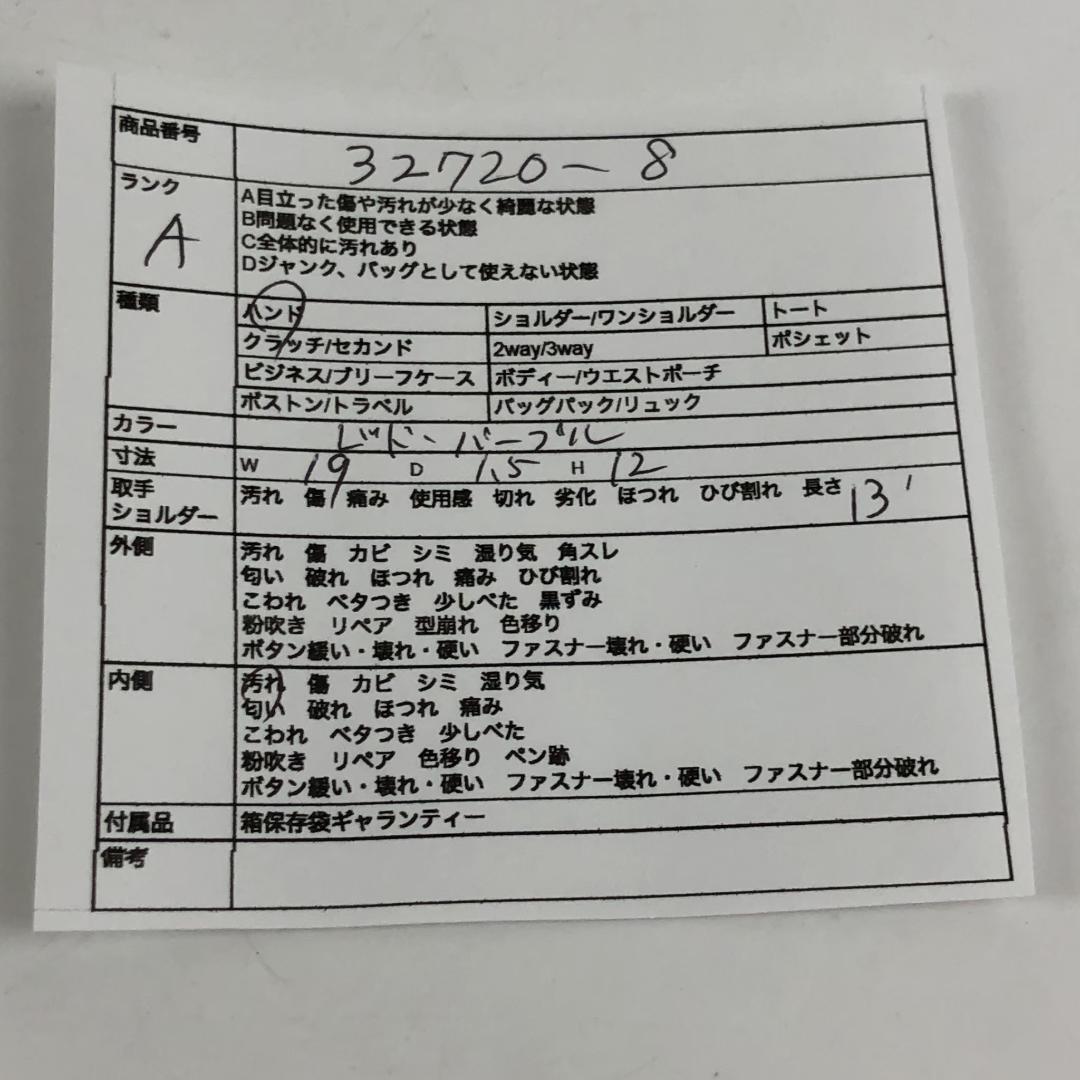 商品番号 32720-8
ランク A
A目立った傷や汚れが少なく綺麗な状態
B問題なく使用できる状態
C全体的に汚れあり
Dジャンク、バッグとして使えない状態
種類 ハンド ショルダー/ワンショルダー トート
クラッチ/セカンド 2way/3way ポシェット
ビジネス/ブリーフケース ボディー/ウエストポーチ
ボストン/トラベル バッグパック/リュック
カラー レッド・パープル
寸法 W 19 D 1.5 H 12
取手 汚れ 傷 痛み 使用感 切れ 劣化 ほつれ ひび割れ 長さ 13
ショルダー
外側 汚れ 傷 カビ シミ 湿り気 角スレ
匂い 破れ ほつれ 痛み ひび割れ
こわれ ベタつき 少しべた 黒ずみ
粉吹き リペア 型崩れ 色移り
ボタン緩い・壊れ・硬い ファスナー壊れ・硬い ファスナー部分破れ
内側 汚れ 傷 カビ シミ 湿り気
匂い 破れ ほつれ 痛み
こわれ ベタつき 少しべた
粉吹き リペア 色移り ペン跡
ボタン緩い・壊れ・硬い ファスナー壊れ・硬い ファスナー部分破れ
付属品 箱保存袋ギャランティー
備考